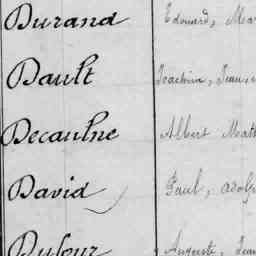 Durand Edouard, Mar
Dault Joachim, Jean,
Decaulne Albert Math
David Paul, Adolp
Dufour Auguste, Jean